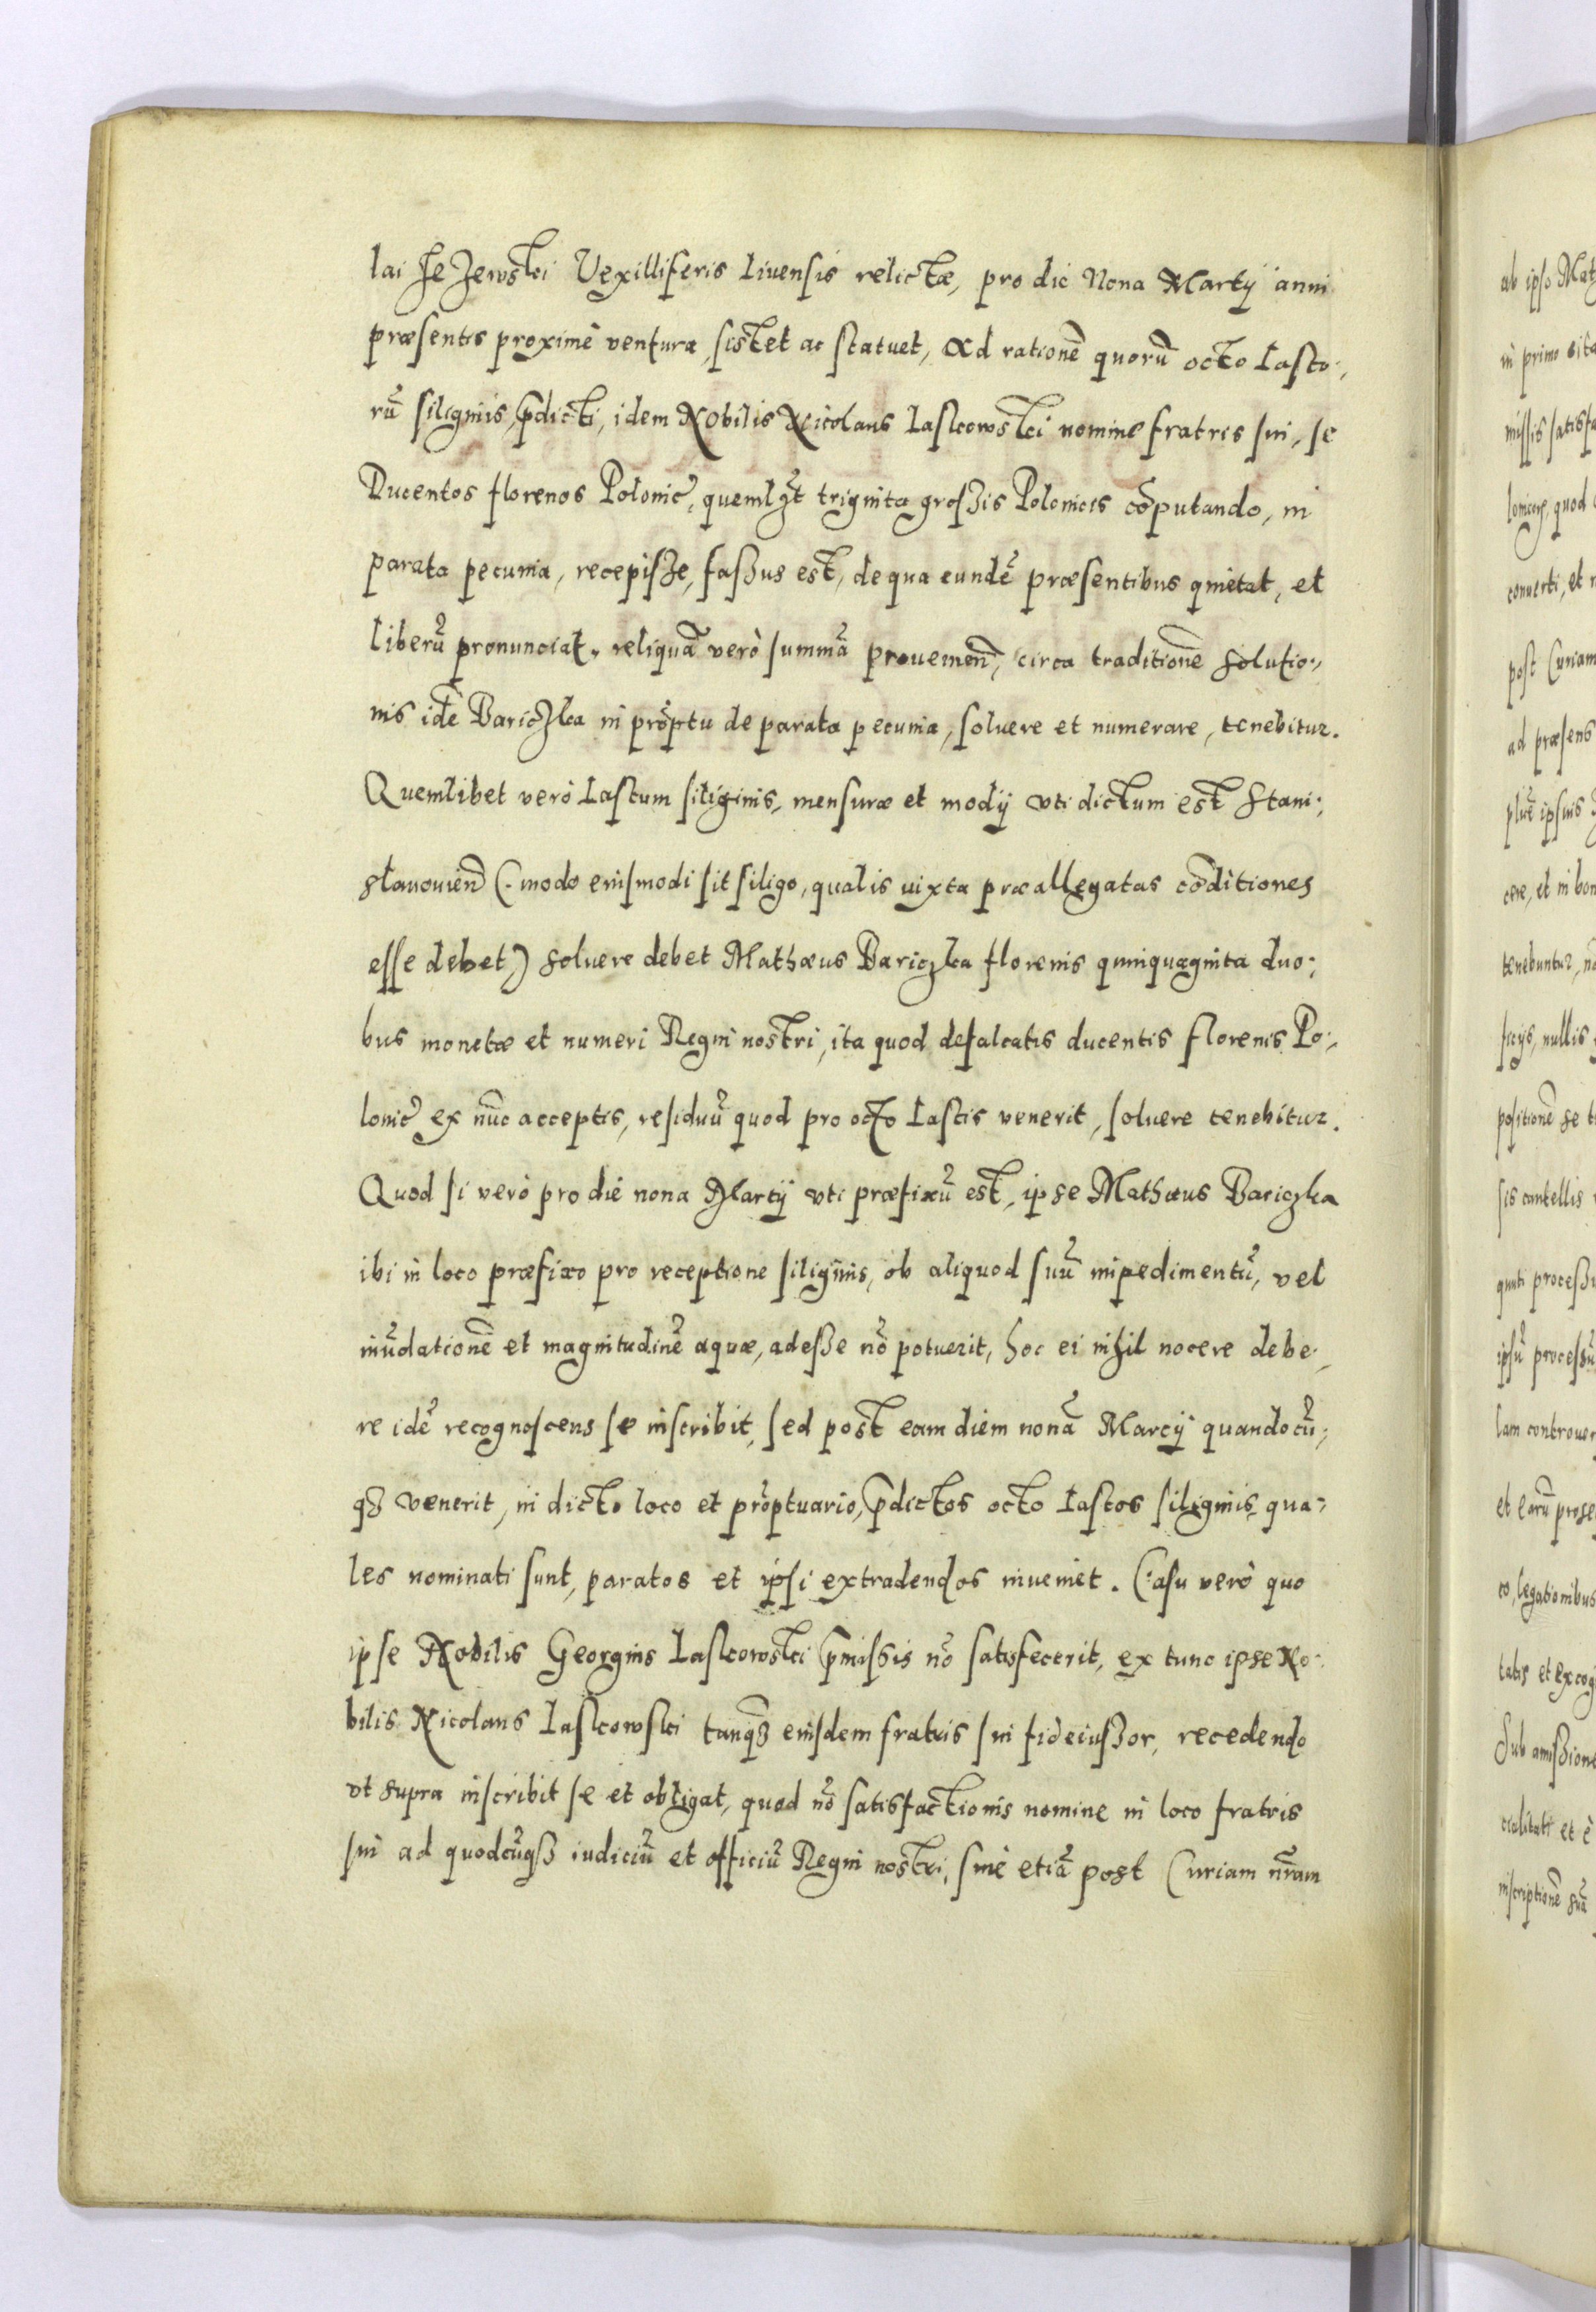 lai JeJewski Vexilliferis Liuensis relictæ, pro die Nona Martÿ anni
præsentis proximè ventura, sistet ac statuet, Ad rationẽ quorũ octo Lasto,
rũ siliginis p̃dicti, idem Nobilis Nicolaus Laskowski nomine fratris sui, se
Ducentos florenos Polonic̃, quemlꝫt triginta groszis Polonicis cõputando, in
parata pecunia, recepisze, faszus est, de qua eundẽ præsentibus quietat, et
liberũ pronunciat. reliquã verò summã prouenien̄, circa traditionẽ solutio,,
nis idẽ Bariczka in prõptu de parata pecunia, soluere et numerare, tenebitur.
Quemlibet verò Lastum siliginis, mensuræ et modÿ vti dictum est Stani;
slauouien̄ (: modo eiusmodi sit siligo, qualis iuxta præallegatas cõditiones
esse debet,) soluere debet Mathæus Bariczka florenis quinquaginta duo;
bus monetæ et numeri Regni nostri, ita quod defalcatis ducentis florenis Po,,
lonic̃ ex nũc acceptis, residuũ quod pro octo Lastis venerit, soluere tenebitur.
Quod si verò pro die nona Martÿ vti præfixũ est, ipse Mathæus Bariczka
ibi in loco præfixo pro receptione siliginis, ob aliquod suũ impedimentũ, vel
inũdationẽ et magnitudinẽ aquæ, adesze nõ potuerit, hoc ei nihil nocere debe,
re idẽ recognoscens se inscribit, sed post eam diem nonã Marcÿ quandocũ;
qꝫ venerit, in dicto loco et prõptuario, p̃dictos octo Lastos siliginis, qua;
les nominati sunt, paratos et ipsi extradendos inueniet. Casu verò quo
ipse Nobilis Georgius Laskowski p̃miszis nõ satisfecerit, ex tunc ipse No,
bilis Nicolaus Laskowski tanq̃ꝫ eiusdem fratris sui fideiuszor, recedendo
vt supra inscribit se et obligat, quod nõ satisfactionis nomine in loco fratris
sui ad quodcũqꝫ iudiciũ et officiũ Regni nostri, siue etiã post Curiam nr̃am